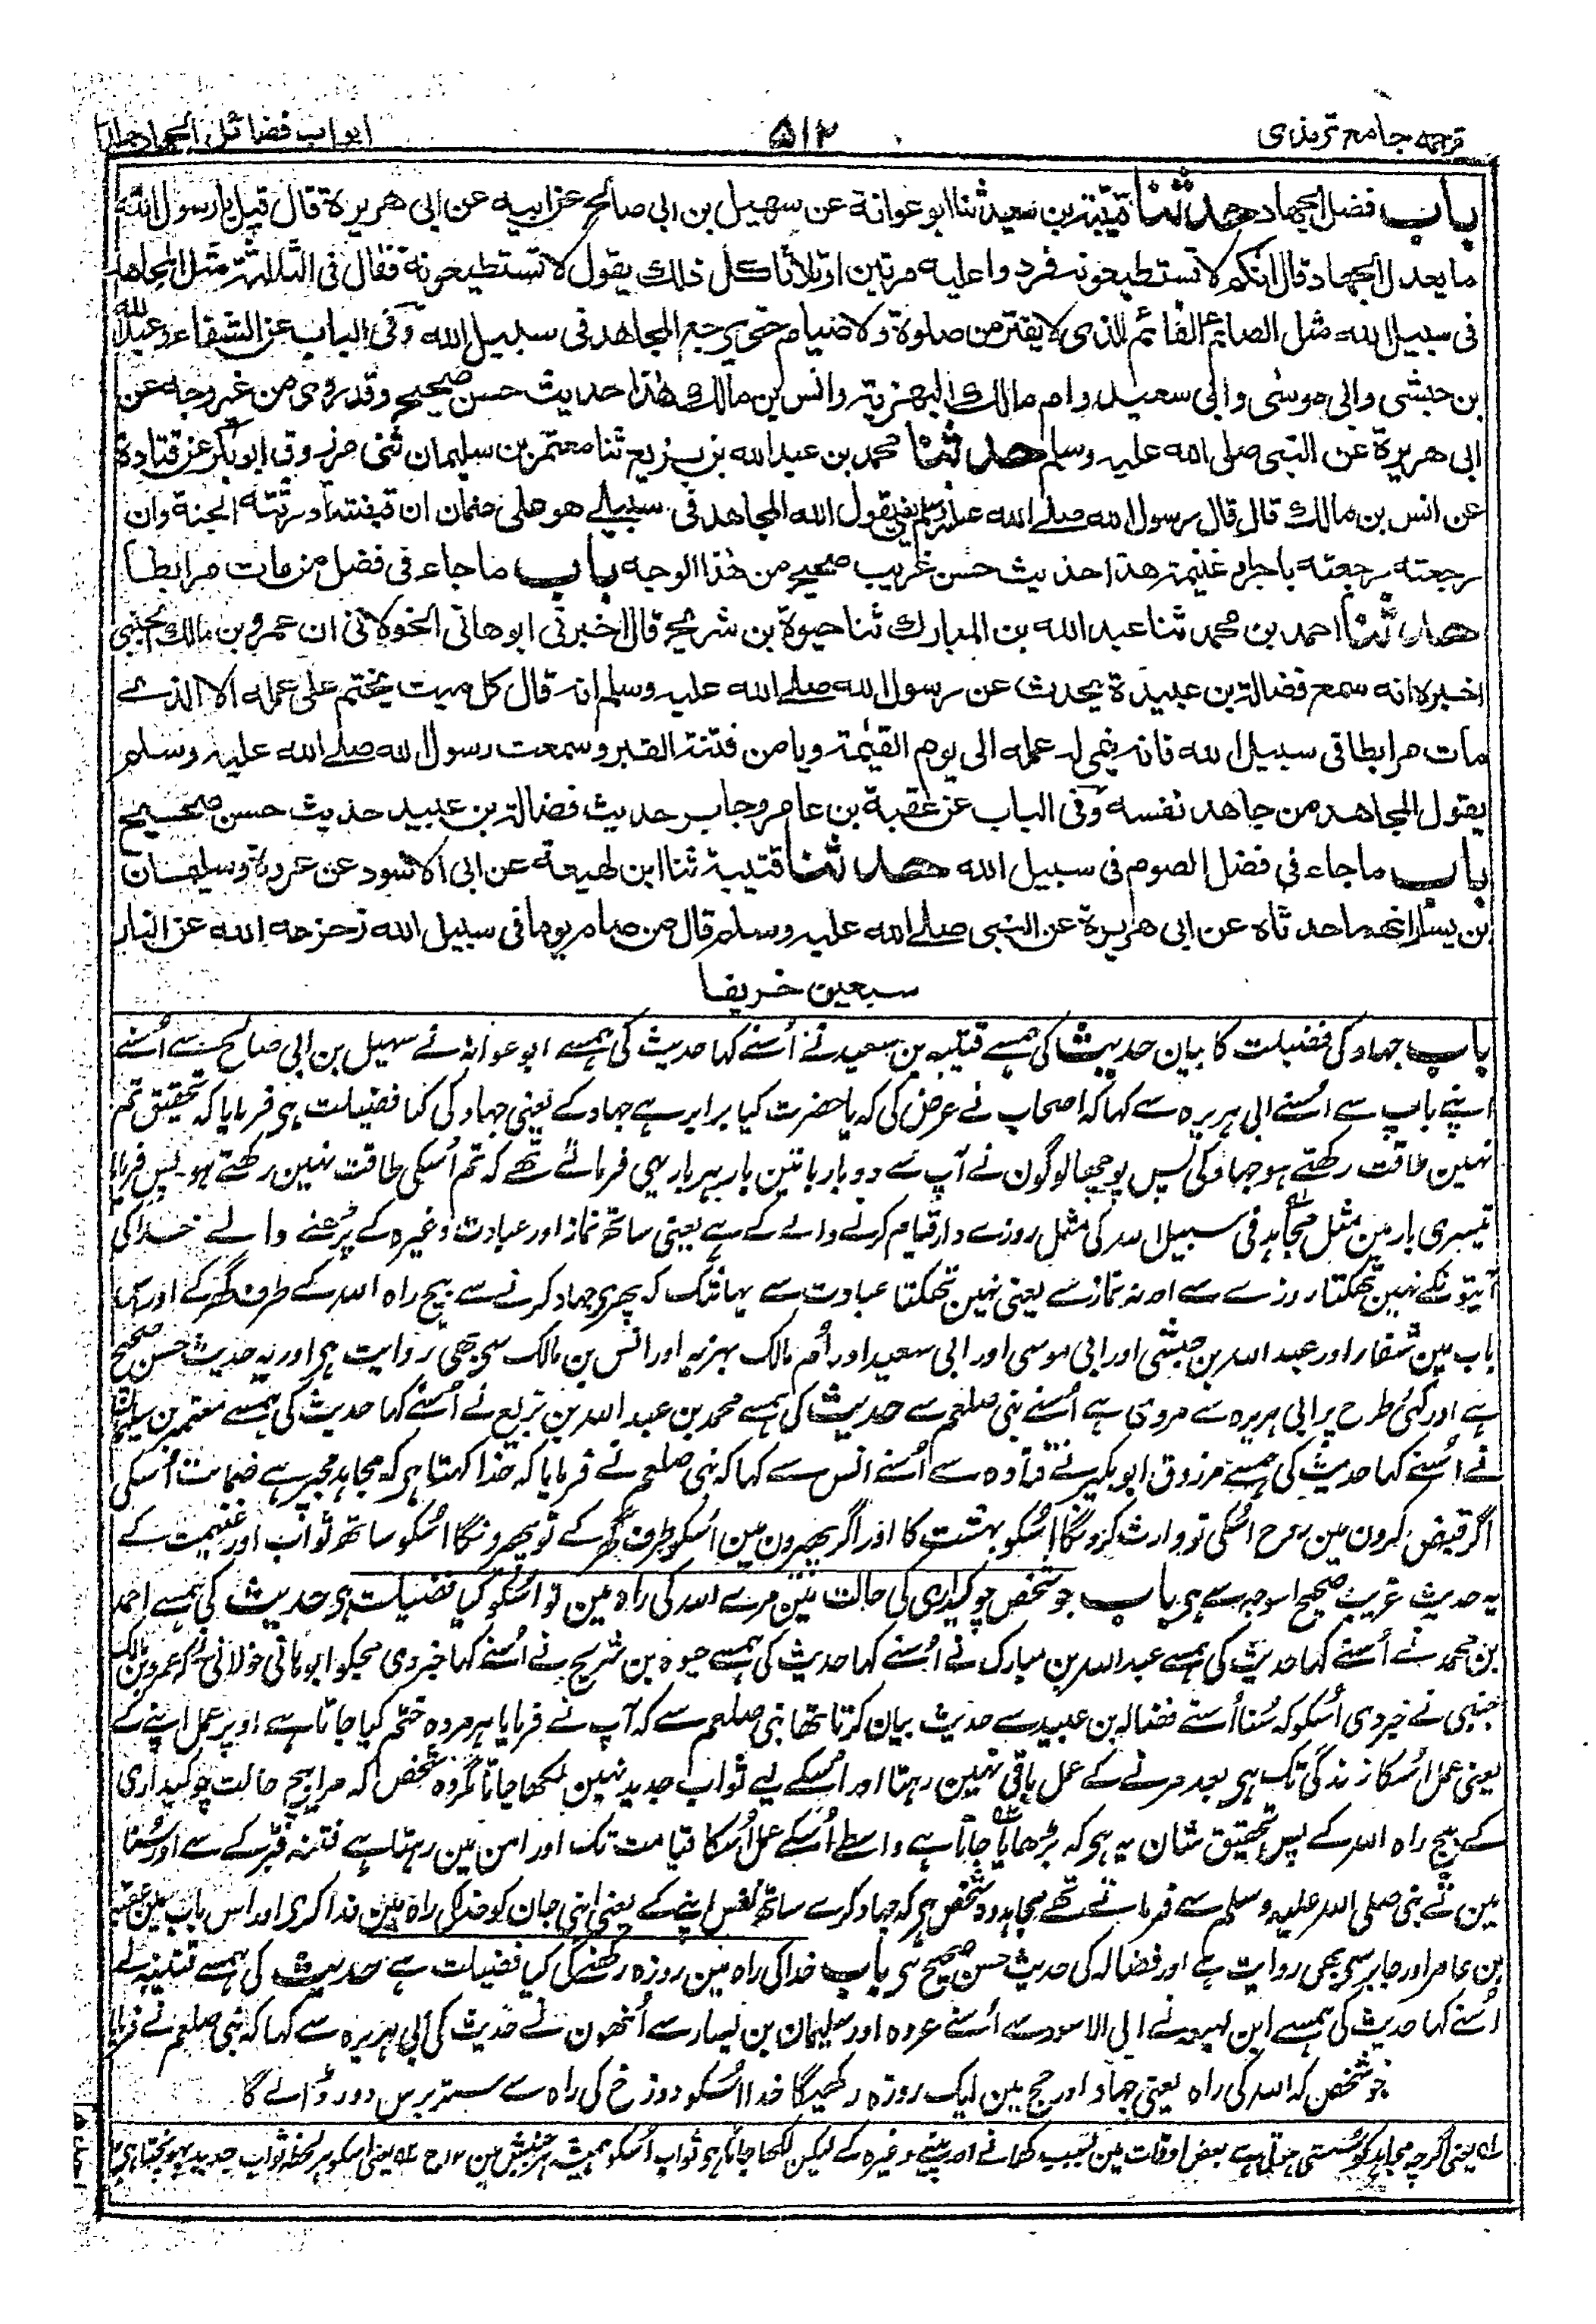 ترجمه جامع ترمذی
۵۱۲
ابواب فضائل الجهاد جلد ۱
باب فضل الجهاد حدثنا قتیبة بن سعید ثنا ابو عوانة عن سهیل بن ابی صالح عن ابیه عن ابی هریرة قال قیل یا رسول الله
ما یعدل الجهاد قال انکم لا تستطیعونه فردوا علیه مرتین او ثلاثا کل ذلك یقول لا تستطیعونه فقال فی الثالثة مثل المجاهد
فی سبیل الله مثل الصائم القائم الذی لا یفتر من صلوة ولا صیام حتی یرجع المجاهد فی سبیل الله وفی الباب عن الشفاء وعبد الله
بن حبشی وابی موسی وابی سعید وام مالك البهزیة وانس بن مالك هذا حدیث حسن صحیح وقد روی من غیر وجه عن
ابی هریرة عن النبی صلی الله علیه وسلم حدثنا محمد بن عبد الله بن بزیع ثنا معتمر بن سلیمان ثنی مرزوق ابو بکر عن قتادة
عن انس بن مالك قال قال رسول الله صلے الله علیه وسلم یعنی یقول الله المجاهد فی سبیلے هو علی ضمان ان قبضته اورثته الجنة وان
رجعته رجعته باجر او غنیمة هذا حدیث حسن غریب صحیح من هذا الوجه باب ما جاء فی فضل من مات مرابطا
حدثنا احمد بن محمد ثنا عبد الله بن المبارك ثنا حیوة بن شریح قال اخبرنی ابو هانی الخولانی ان عمرو بن مالك الجنبی
اخبره انه سمع فضالة بن عبیدة یحدث عن رسول الله صلے الله علیه وسلم انه قال کل میت یختم علی عمله الا الذے
مات مرابطا فی سبیل الله فانه ینمی له عمله الی یوم القیٰمة ویامن فتنة القبر وسمعت رسول الله صلے الله علیه وسلم
یقول المجاهد من جاهد نفسه وفی الباب عن عقبة بن عامر وجابر حدیث فضالة بن عبید حدیث حسن صحیح
باب ما جاء فی فضل الصوم فی سبیل الله حدثنا قتیبة ثنا ابن لهیعة عن ابی الاسود عن عروة وسلیمان
بن یسار انهما حدثاه عن ابی هریرة عن النبی صلے الله علیه وسلم قال من صام یوما فی سبیل الله زحزحه الله عن النار
سبعین خریفا
باب جہاد کی فضیلت کا بیان حدیث کی ہمسے قتیبہ بن سعید نے اُسنے کہا حدیث کی ہمسے ابو عوانہ نے سہیل بن ابی صالح سے اُسنے
اپنے باپ سے اُسنے ابی ہریرہ سے کہا کہ اصحاب نے عرض کی کہ یا حضرت کیا برابر ہے جہاد کے یعنی جہاد کی کیا فضیلت ہی فرمایا کہ تحقیق تم
نہین طاقت رکھتے ہو جہاد کی پس پوچھا لوگون نے آپ سے دو بار یا تین بار ہر بار یہی فرماتے تھے کہ تم اُسکی طاقت نہین رکھتے ہو۔ پس فرمایا
تیسری بار مین مثل مجاہد فی سبیل اللہ کی مثل روزے دار قیام کرنے والے کے ہے یعنی ساتھ نماز اور عبادت وغیرہ کے پڑھنے والے خدا کی
آیتونکے نہین تھکتا روزے سے اور نہ نماز سے یعنی نہین تھکتا عبادت سے یہانتک کہ پھرے جہاد کرنے سے بیچ راہ اللہ کے طرف گھر کے اور اس
باب مین شفار اور عبد اللہ بن حبشی اور ابی موسی اور ابی سعید اور اُم مالک بہزیہ اور انس بن مالک سے بھی روایت ہی اور یہ حدیث حسن صحیح
ہے اور کئی طرح پر ابی ہریرہ سے مروی ہے اُسنے نبی صلعم سے حدیث کی ہمسے محمد بن عبد اللہ بن بزیع نے اُسنے کہا حدیث کی ہمسے معتمر بن سلیمان
نے اُسنے کہا حدیث کی ہمسے مرزوق ابو بکر نے قتادہ سے اُسنے انس سے کہا کہ نبی صلعم نے فرمایا کہ خدا کہتا ہی کہ مجاہد مجھپر ہے ضمانت اُسکی
اگر قبض کرون مین روح اُسکی تو وارث کرونگا اُسکو بہشت کا اور اگر پھیرون مین اُسکو طرف گھر کے تو پھیرونگا اُسکو ساتھ ثواب اور غنیمت کے
یہ حدیث غریب صحیح اسوجہ سے ہی باب جو شخص چوکیداری کی حالت مین مرے اللہ کی راہ مین تو اُسکو کیا فضیلت ہی حدیث کی ہمسے احمد
بن محمد نے اُسنے کہا حدیث کی ہمسے عبد اللہ بن مبارک نے اُسنے کہا حدیث کی ہمسے حیوہ بن شریح نے اُسنے کہا خبر دی مجکو ابو ہانی خولانی نے کہ عمرو بن مالک
جنبی نے خبر دی اُسکو کہ سُنا اُسنے فضالہ بن عبید سے حدیث بیان کرتا تھا نبی صلعم سے کہ آپ نے فرمایا ہر مردہ ختم کیا جاتا ہے اوپر عمل اپنے کے
یعنی عمل اُسکا زندگی تک ہی بعد مرنے کے عمل باقی نہین رہتا اور اُسکے لیے ثواب جدید نہین لکھا جاتا مگر وہ شخص کہ مرا بیچ حالت چوکیداری
کے بیچ راہ اللہ کے پس تحقیق شان یہ ہی کہ بڑھایا جاتا ہے واسطے اُسکے عمل اُسکا قیامت تک اور امن مین رہتا ہے فتنہ قبر کے سے اور سُنا
مین نے نبی صلی اللہ علیہ وسلم سے فرماتے تھے مجاہد وہ شخص ہی کہ جہاد کرے ساتھ نفس اپنے کے یعنی اپنی جان کو خدا کی راہ مین فدا کری اور اس باب مین عقبہ
بن عامر اور جابر سے بھی روایت ہے اور فضالہ کی حدیث حسن صحیح ہی باب خدا کی راہ مین روزہ رکھنے کی کیا فضیلت ہے حدیث کی ہمسے قتیبہ نے
اُسنے کہا حدیث کی ہمسے ابن لہیعہ نے ابی الاسود سے اُسنے عروہ اور سلیمان بن یسار سے اُنھون نے حدیث کی ابی ہریرہ سے کہا کہ نبی صلعم نے فرمایا
جو شخص کہ اللہ کی راہ یعنی جہاد اور حج مین ایک روزہ رکھیگا خدا اُسکو دوزخ کی راہ سے ستر برس دور ڈالے گا
سلہ یعنی اگرچہ مجاہد کو سُستی ہوتی ہے بعض اوقات مین بسبب کھانے اور پینے وغیرہ کے لیکن لکھا جاتا ہی ثواب اُسکو ہمیشہ ہر جنبش مین ۱۲ ح سلہ یعنی اسکو ہر لحظہ ثواب جدید پہونچتا ہی ۱۲